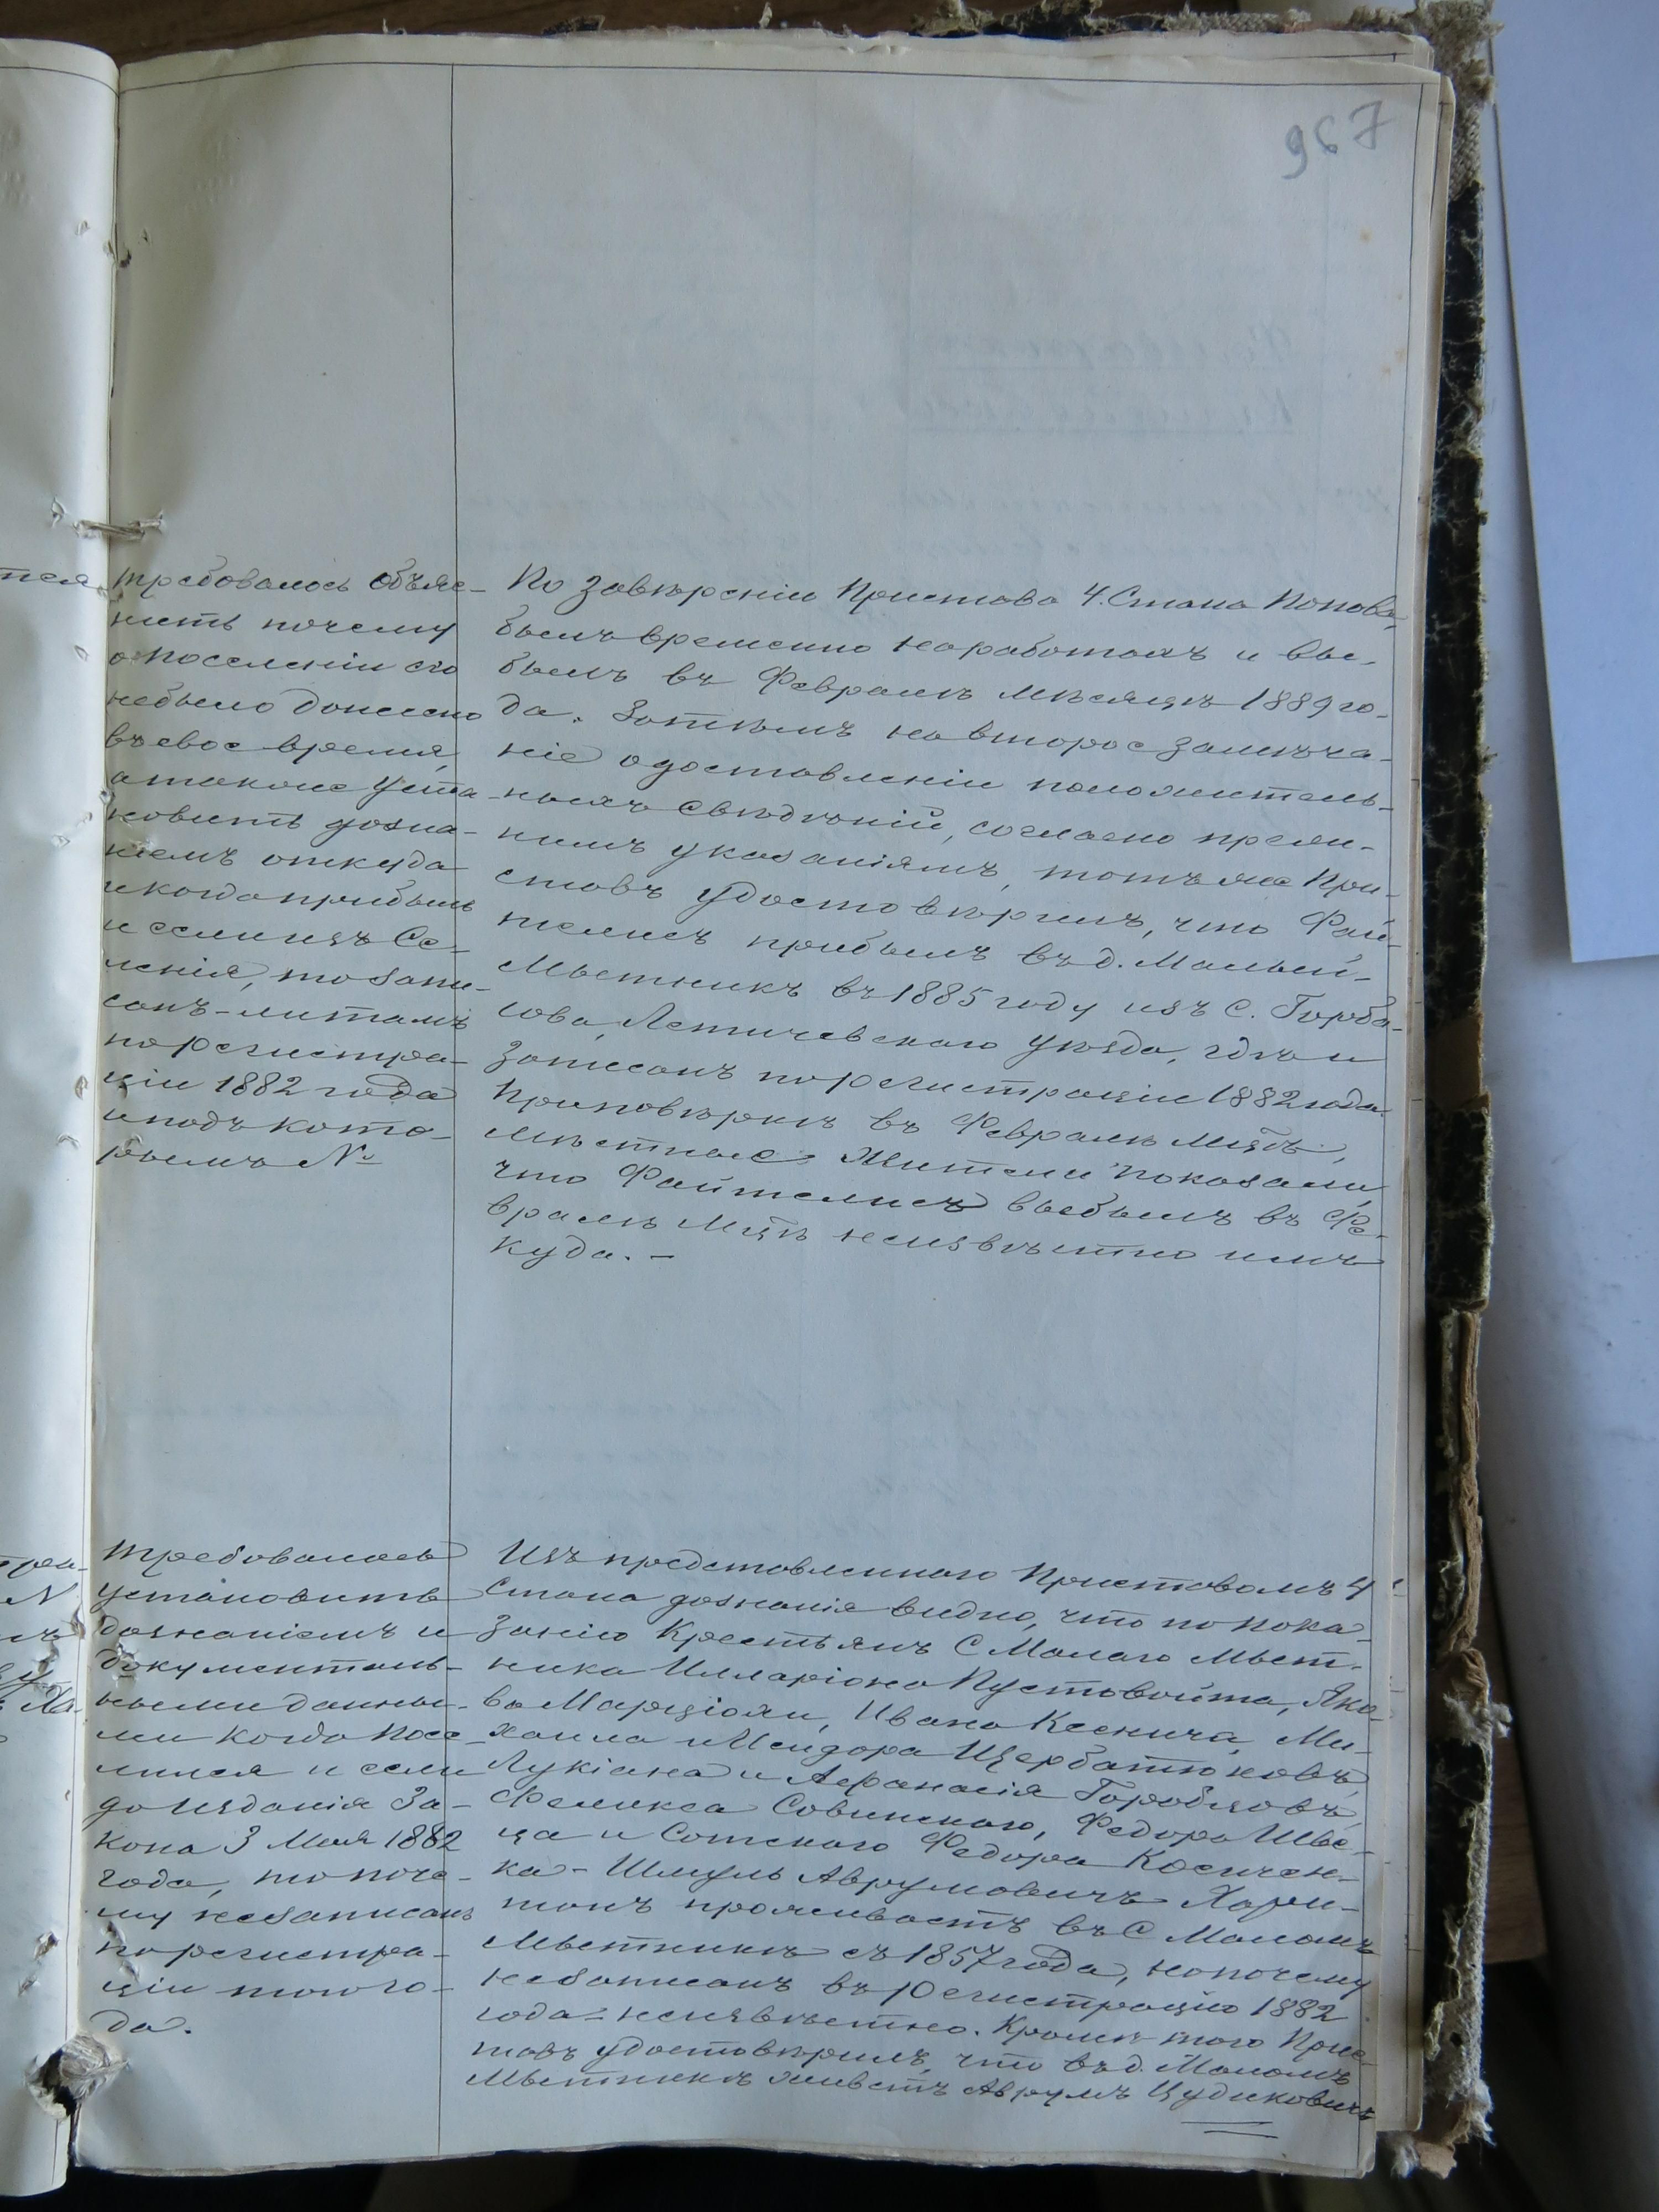 967
требовалось объяс-
нить почему
о поселеніи его
небыло донесено
въ свое время,
а также уста-
новить дозна-
ніемъ откуда
и когда прибылъ
и если изъ Се-
ленія, то запи-
санъ-ли тамъ
по регистра-
ціи 1882 года
и подъ кото-
рымъ №
По завѣренію Пристава 4. Стана Попова,
былъ временно на работахъ и вы-
былъ въ Февралѣ мѣсяцѣ 1889 го-
да. Затѣмъ на второе замѣча-
ніе о доставленіи положитель-
ныхъ свѣдѣній, согласно преж-
нимъ указаніямъ, тотъ же При-
ставъ удостовѣрилъ, что Фай-
телисъ прибылъ въ д. Малый-
Мытникъ въ 1885 году изъ С. Горба-
сова, Летичевскаго уѣзда, гдѣ и
записанъ по регистраціи 1882 года.
При повѣркѣ въ Февралѣ М-цѣ,
мѣстные жители показали,
что Файтелисъ выбылъ въ Фе-
вралѣ М-цѣ неизвѣстно имъ
куда. —
Требовалось
установить
дознаніемъ и
документаль-
ными данны-
ми когда посе-
лился и если
до изданія За-
кона 3 Мая 1882
года, то поче-
му незаписанъ
по регистра-
ціи того го-
да.
Изъ представленнаго Приставомъ 4
Стана дознанія видно, что по пока-
занію Крестьянъ С Малаго Мыт-
ника Илларіона Пустовойта, Яко-
ва Марціохи, Ивана Ксенича, Ми-
хаила и Исидора Щербатюковъ,
Лукіана и Афанасія Горобцовъ,
Феликса Совинскаго, Федора Шве-
ца и Сотскаго Федора Косичен-
ка - Шмуль Аврумовичъ Хари-
тонъ проживаетъ въ С Маломъ
Мытникѣ съ 1857 года, но почему
незаписанъ въ регистрацію 1882
года - неизвѣстно. Кромѣ того При-
ставъ удостовѣрилъ, что въ д. Маломъ
Мытникѣ живетъ Аврумъ Цудиковичъ